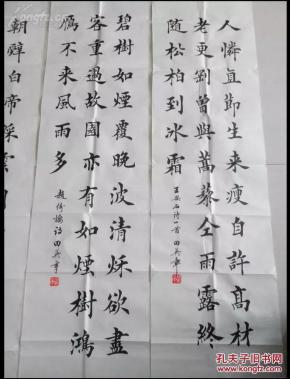 人憐直節生来瘦自許高材
老更剛曾與蒿藜仝雨露終
随松柏到冰霜
王安石诗一首 田英章
碧樹如煙覆晚波清秋欲盡
客重過故園亦有如煙樹鴻
雁不来風雨多
趙倚樓诗 田英章
朝辭白帝彩雲間
孔夫子旧书网